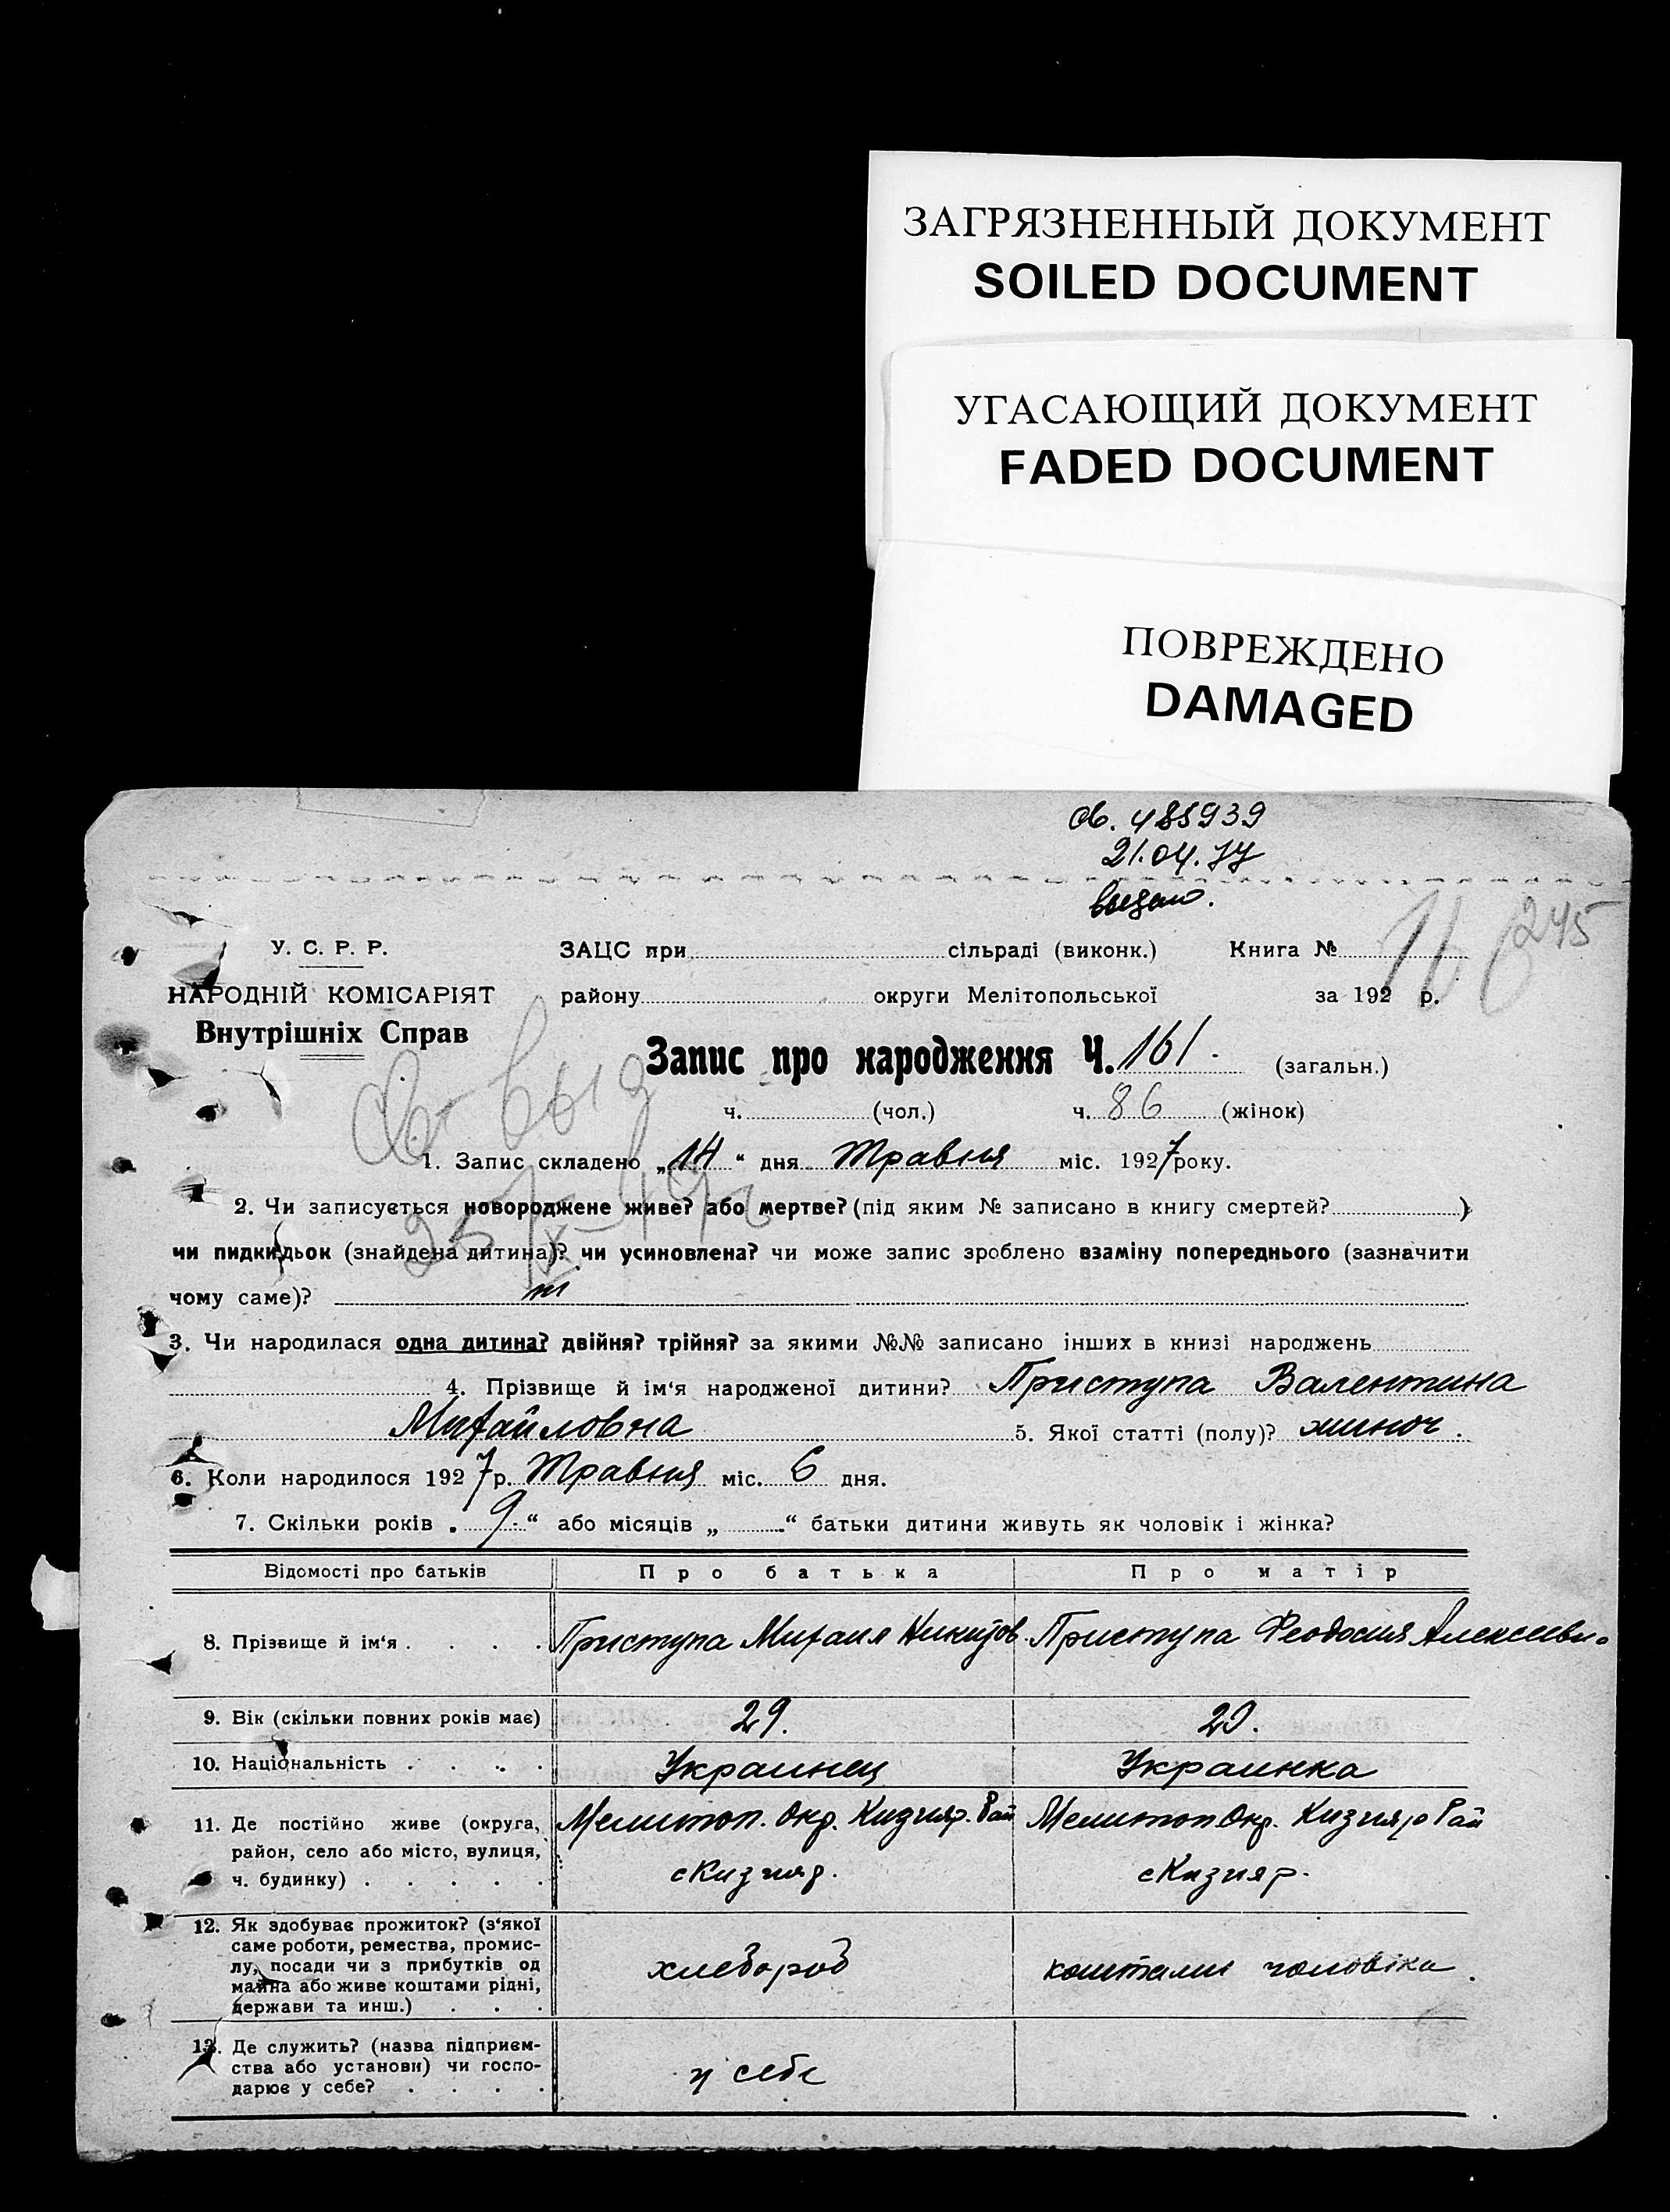 ЗАГРЯЗНЕННЫЙ ДОКУМЕНТ
SOILED DOCUMENT
УГАСАЮЩИЙ ДОКУМЕНТ
FADED DOCUMENT
ПОВРЕЖДЕНО
DAMAGED
св. 485939
21.04.77
выдано.
245
У. С. Р. Р.
НАРОДНІЙ КОМІСАРІЯТ
Внутрішніх Справ
ЗАЦС при сільраді (виконк.) Книга №
району округи Мелітопольської за 192 р.
Запис про народження Ч. 161. (загальн.)
ч. (чол.) ч. 86 (жінок)
1. Запис складено „14“ дня Травня міс. 1927 року.
2. Чи записується новороджене живе? або мертве? (під яким № записано в книгу смертей? )
чи пидкидьок (знайдена дитина)? чи усиновлена? чи може запис зроблено взаміну попереднього (зазначити
чому саме)?
3. Чи народилася одна дитина? двійня? трійня? за якими №№ записано інших в книзі народжень
4. Прізвище й ім‘я народженої дитини? Приступа Валентина
Михайловна 5. Якої статті (полу)? жиноч.
6. Коли народилося 1927 р. Травня міс. 6 дня.
7. Скільки років „ 9. “ або місяців „ “ батьки дитини живуть як чоловік і жінка?
Відомості про батьків Про батька Про матір
8. Прізвище й ім‘я . . . . Приступа Михаил Никитов. Приступа Феодосия Алексеевн.
9. Вік (скільки повних років має) 29. 29.
10. Національність . . . . Украинец Украинка
11. Де постійно живе (округа,
район, село або місто, вулиця,
ч. будинку) . . . . .
Мелитоп. Окр. Кизияр. Рай
с Кизияр.
Мелитоп Окр. Кизияр Рай
с Кизияр.
12. Як здобуває прожиток? (з‘якої
саме роботи, ремества, промис-
лу, посади чи з прибутків од
майна або живе коштами рідні,
держави та инш.) . . .
хлебороб
коштами чоловіка.
13. Де служить? (назва підприєм-
ства або установи) чи госпо-
дарює у себе? . . . .
у себе